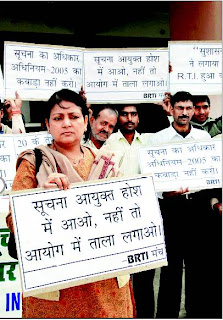 सूचना का अधिकार
अधिनियम-2005 का
कबाड़ा नहीं करो।
सूचना आयुक्त होश
में आओ, नहीं तो
आयोग में ताला लगाओ।
BRTI
"सुशासन
ने लगाया
R.T.I. हुआ
20 के
सूचना का अधिकार
अधिनियम-2005 का
कबाड़ा नहीं करो।
BRTI
सूचना आयुक्त होश
में आओ, नहीं तो
आयोग में ताला लगाओ।
-BRTI मंच
IN